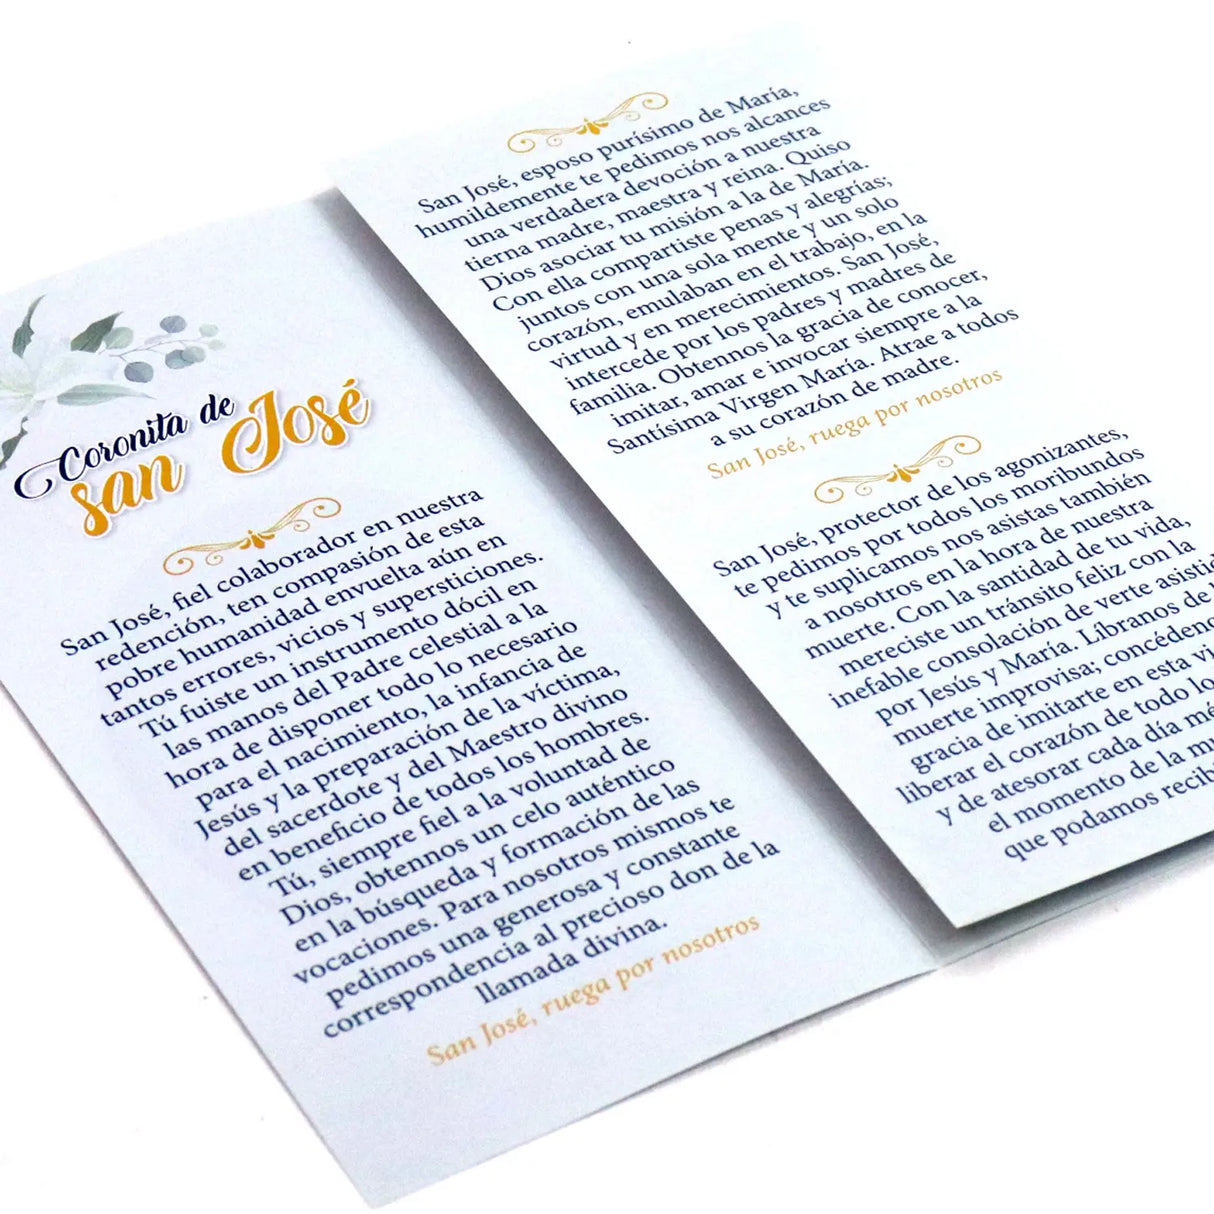 Coronita de
san José
San José, fiel colaborador en nuestra
redención, ten compasión de esta
pobre humanidad envuelta aún en
tantos errores, vicios y supersticiones.
Tú fuiste un instrumento dócil en
las manos del Padre celestial a la
hora de disponer todo lo necesario
para el nacimiento, la infancia de
Jesús y la preparación de la víctima,
del sacerdote y del Maestro divino
en beneficio de todos los hombres.
Tú, siempre fiel a la voluntad de
Dios, obtennos un celo auténtico
en la búsqueda y formación de las
vocaciones. Para nosotros mismos te
pedimos una generosa y constante
correspondencia al precioso don de la
llamada divina.
San José, ruega por nosotros
San José, esposo purísimo de María,
humildemente te pedimos nos alcances
una verdadera devoción a nuestra
tierna madre, maestra y reina. Quiso
Dios asociar tu misión a la de María.
Con ella compartiste penas y alegrías;
juntos con una sola mente y un solo
corazón, emulaban en el trabajo, en la
virtud y en merecimientos. San José,
intercede por los padres y madres de
familia. Obtennos la gracia de conocer,
imitar, amar e invocar siempre a la
Santísima Virgen María. Atrae a todos
a su corazón de madre.
San José, ruega por nosotros
San José, protector de los agonizantes,
te pedimos por todos los moribundos
y te suplicamos nos asistas también
a nosotros en la hora de nuestra
muerte. Con la santidad de tu vida,
mereciste un tránsito feliz con la
inefable consolación de verte asistid
por Jesús y María. Líbranos de
muerte improvisa; concédeno
gracia de imitarte en esta vi
liberar el corazón de todo lo
y de atesorar cada día mé
el momento de la mu
que podamos recib